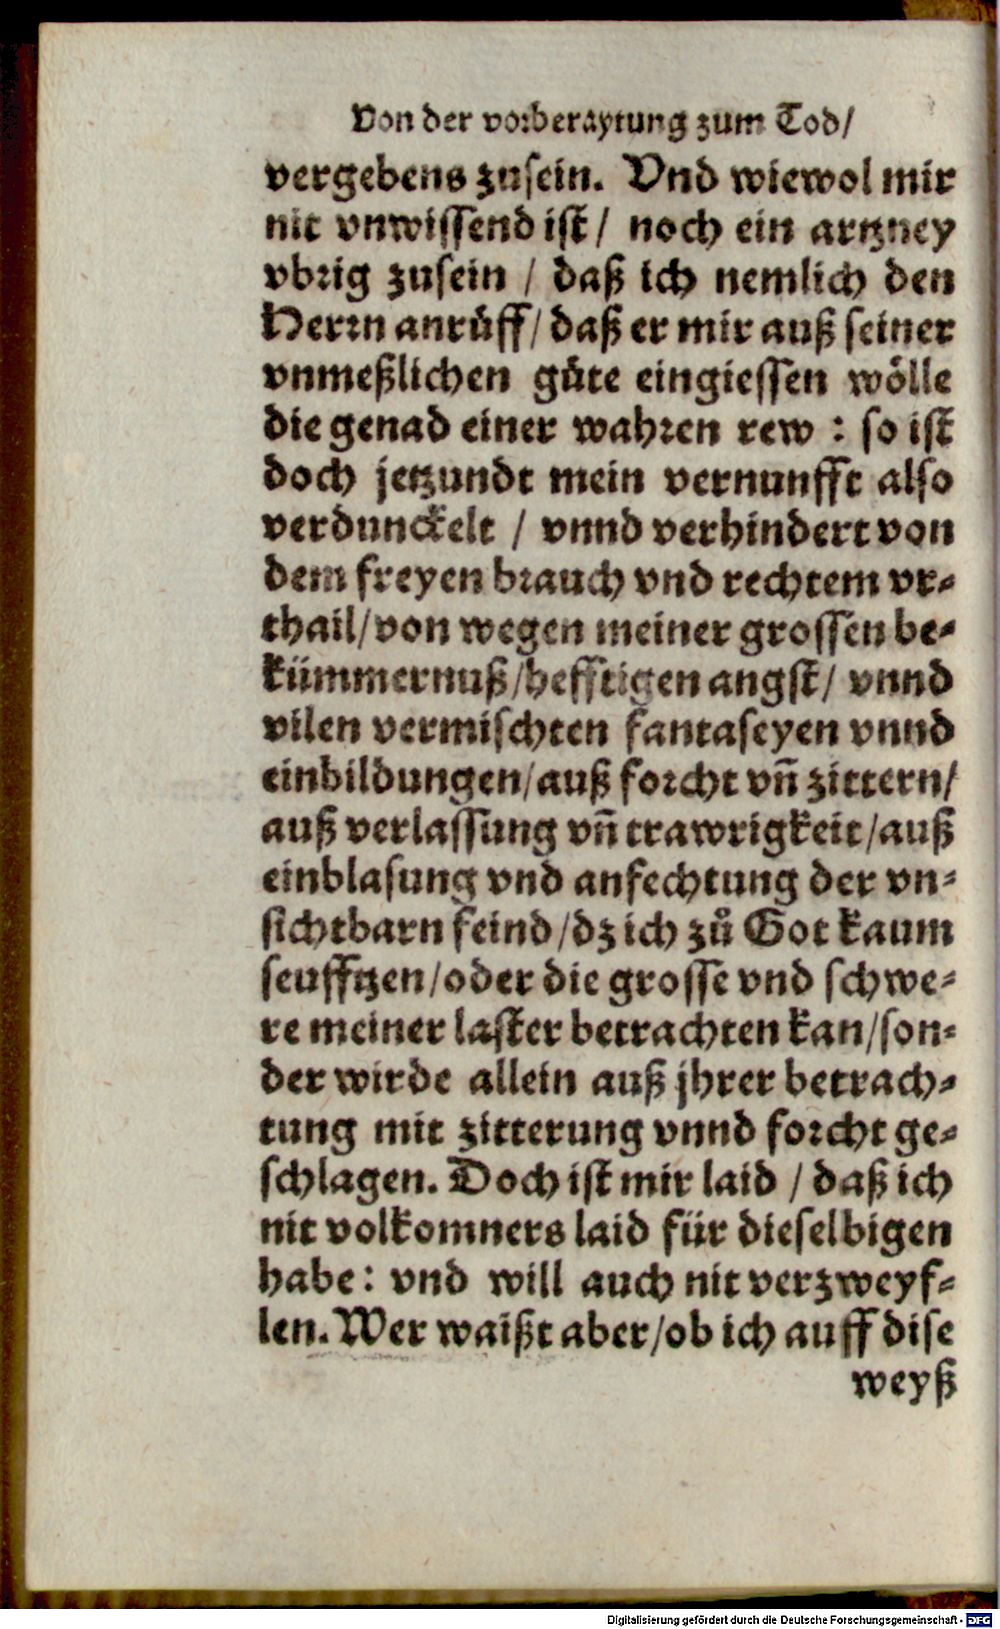 Von der vorberaytung zum Tod/
vergebens zusein. Vnd wiewol mir
nit vnwissend ist/ noch ein artzney
vbrig zusein / daß ich nemlich den
Herrn anrůff/ daß er mir auß seiner
vnmeßlichen gůte eingiessen wölle
die genad einer wahren rew : so ist
doch jetzundt mein vernunfft also
verdunckelt / vnnd verhindert von
dem freyen brauch vnd rechtem vr-
thail/von wegen meiner grossen be-
kümmernuß/hefftigen angst/ vnnd
vilen vermischten fantaseyen vnnd
einbildungen/auß forcht vñ zittern/
auß verlassung vñ trawrigkeit/auß
einblasung vnd anfechtung der vn-
sichtbarn feind/dz ich zů Got kaum
seufftzen/oder die grosse vnd schwe-
re meiner laster betrachten kan/son-
der wirde allein auß jhrer betrach-
tung mit zitterung vnnd forcht ge-
schlagen. Doch ist mir laid / daß ich
nit volkomners laid für dieselbigen
habe: vnd will auch nit verzweyf-
len. Wer waißt aber/ob ich auff dise
weyß
Digitalisierung gefördert durch die Deutsche Forschungsgemeinschaft - DFG